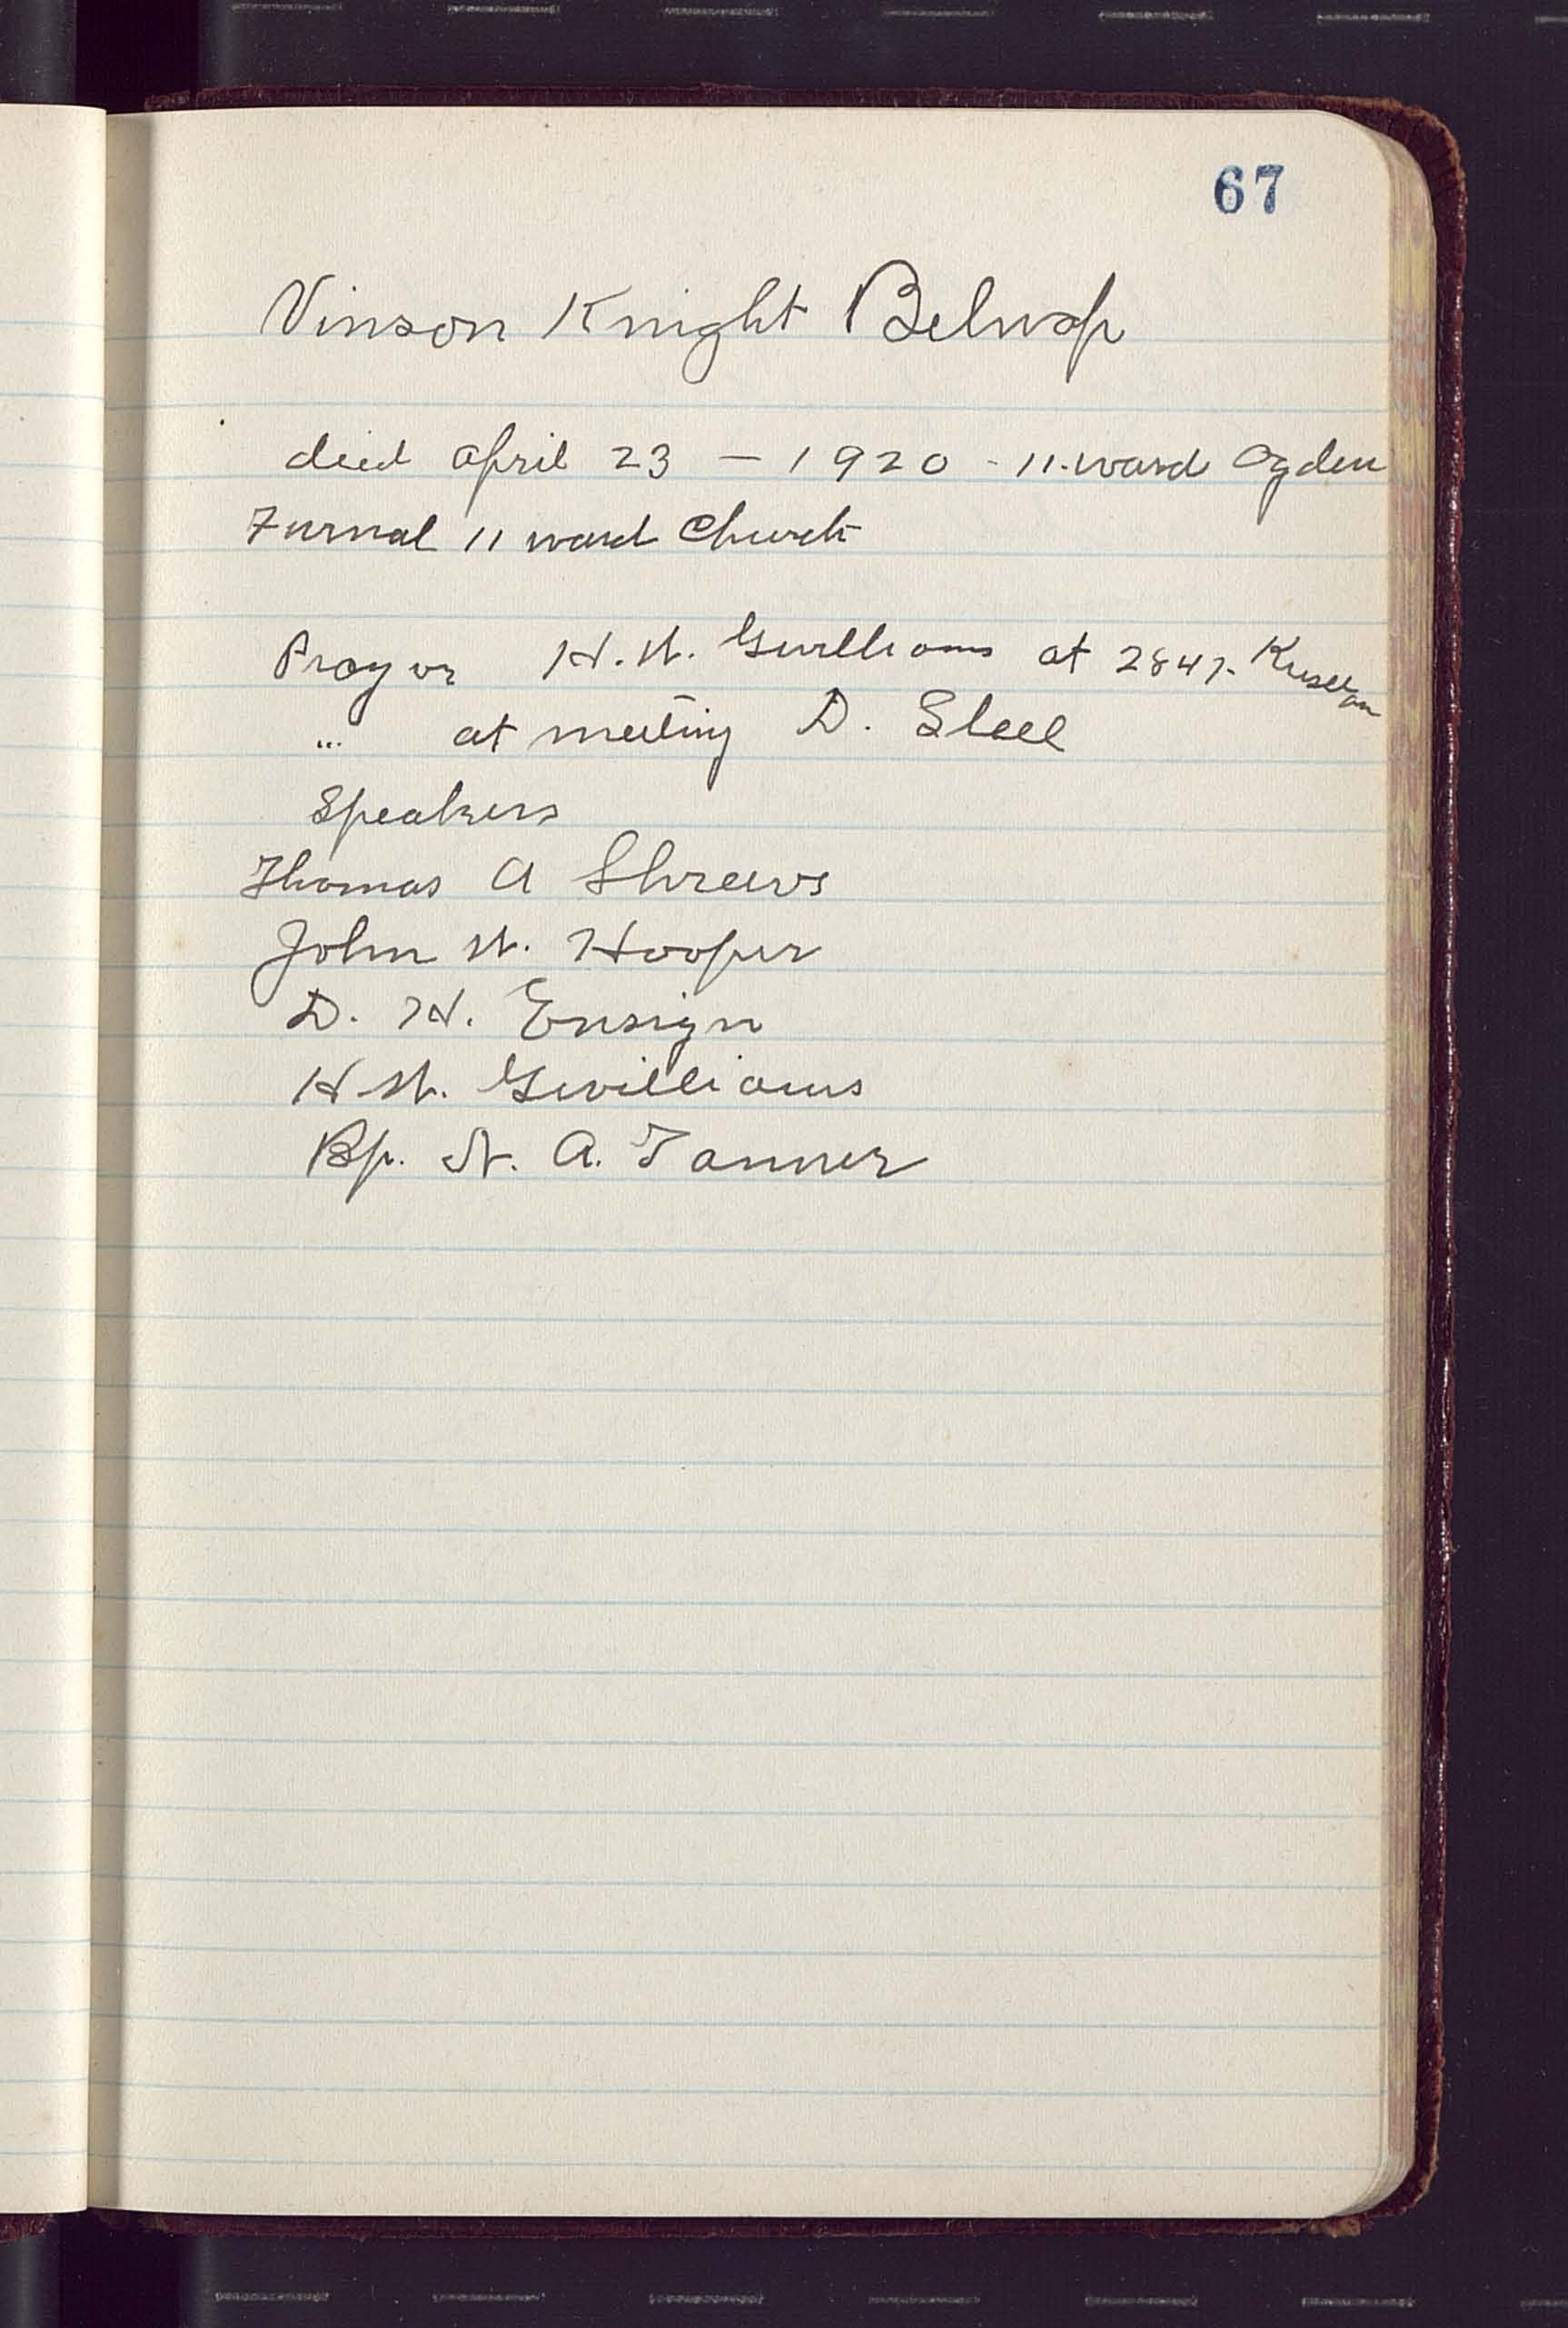 67
Vinson Knight Belnap
died april 23 - 1920 - 11. ward Ogden
Furnal 11 ward Church
Prayer H. W. Gwilliams at 2847-
" at meeting D. Steel
Speakers
Thomas A Shreeves
John W. Hooper
D. H. Ensign
H W. Gwilliams
Bp. N. A. Tanner